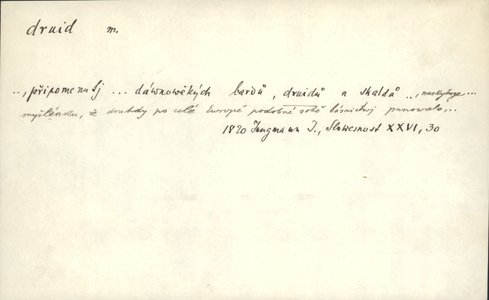 druid m.
.., připomenutj ... dáwnowěkých bardů, druidů a skaldů .., naskytuge ...
myšlénku, že druhdy po celé Europě podobné sobě básnictwj panowalo,..
1820 Jungmann J., Slowesnost XXVI, 30